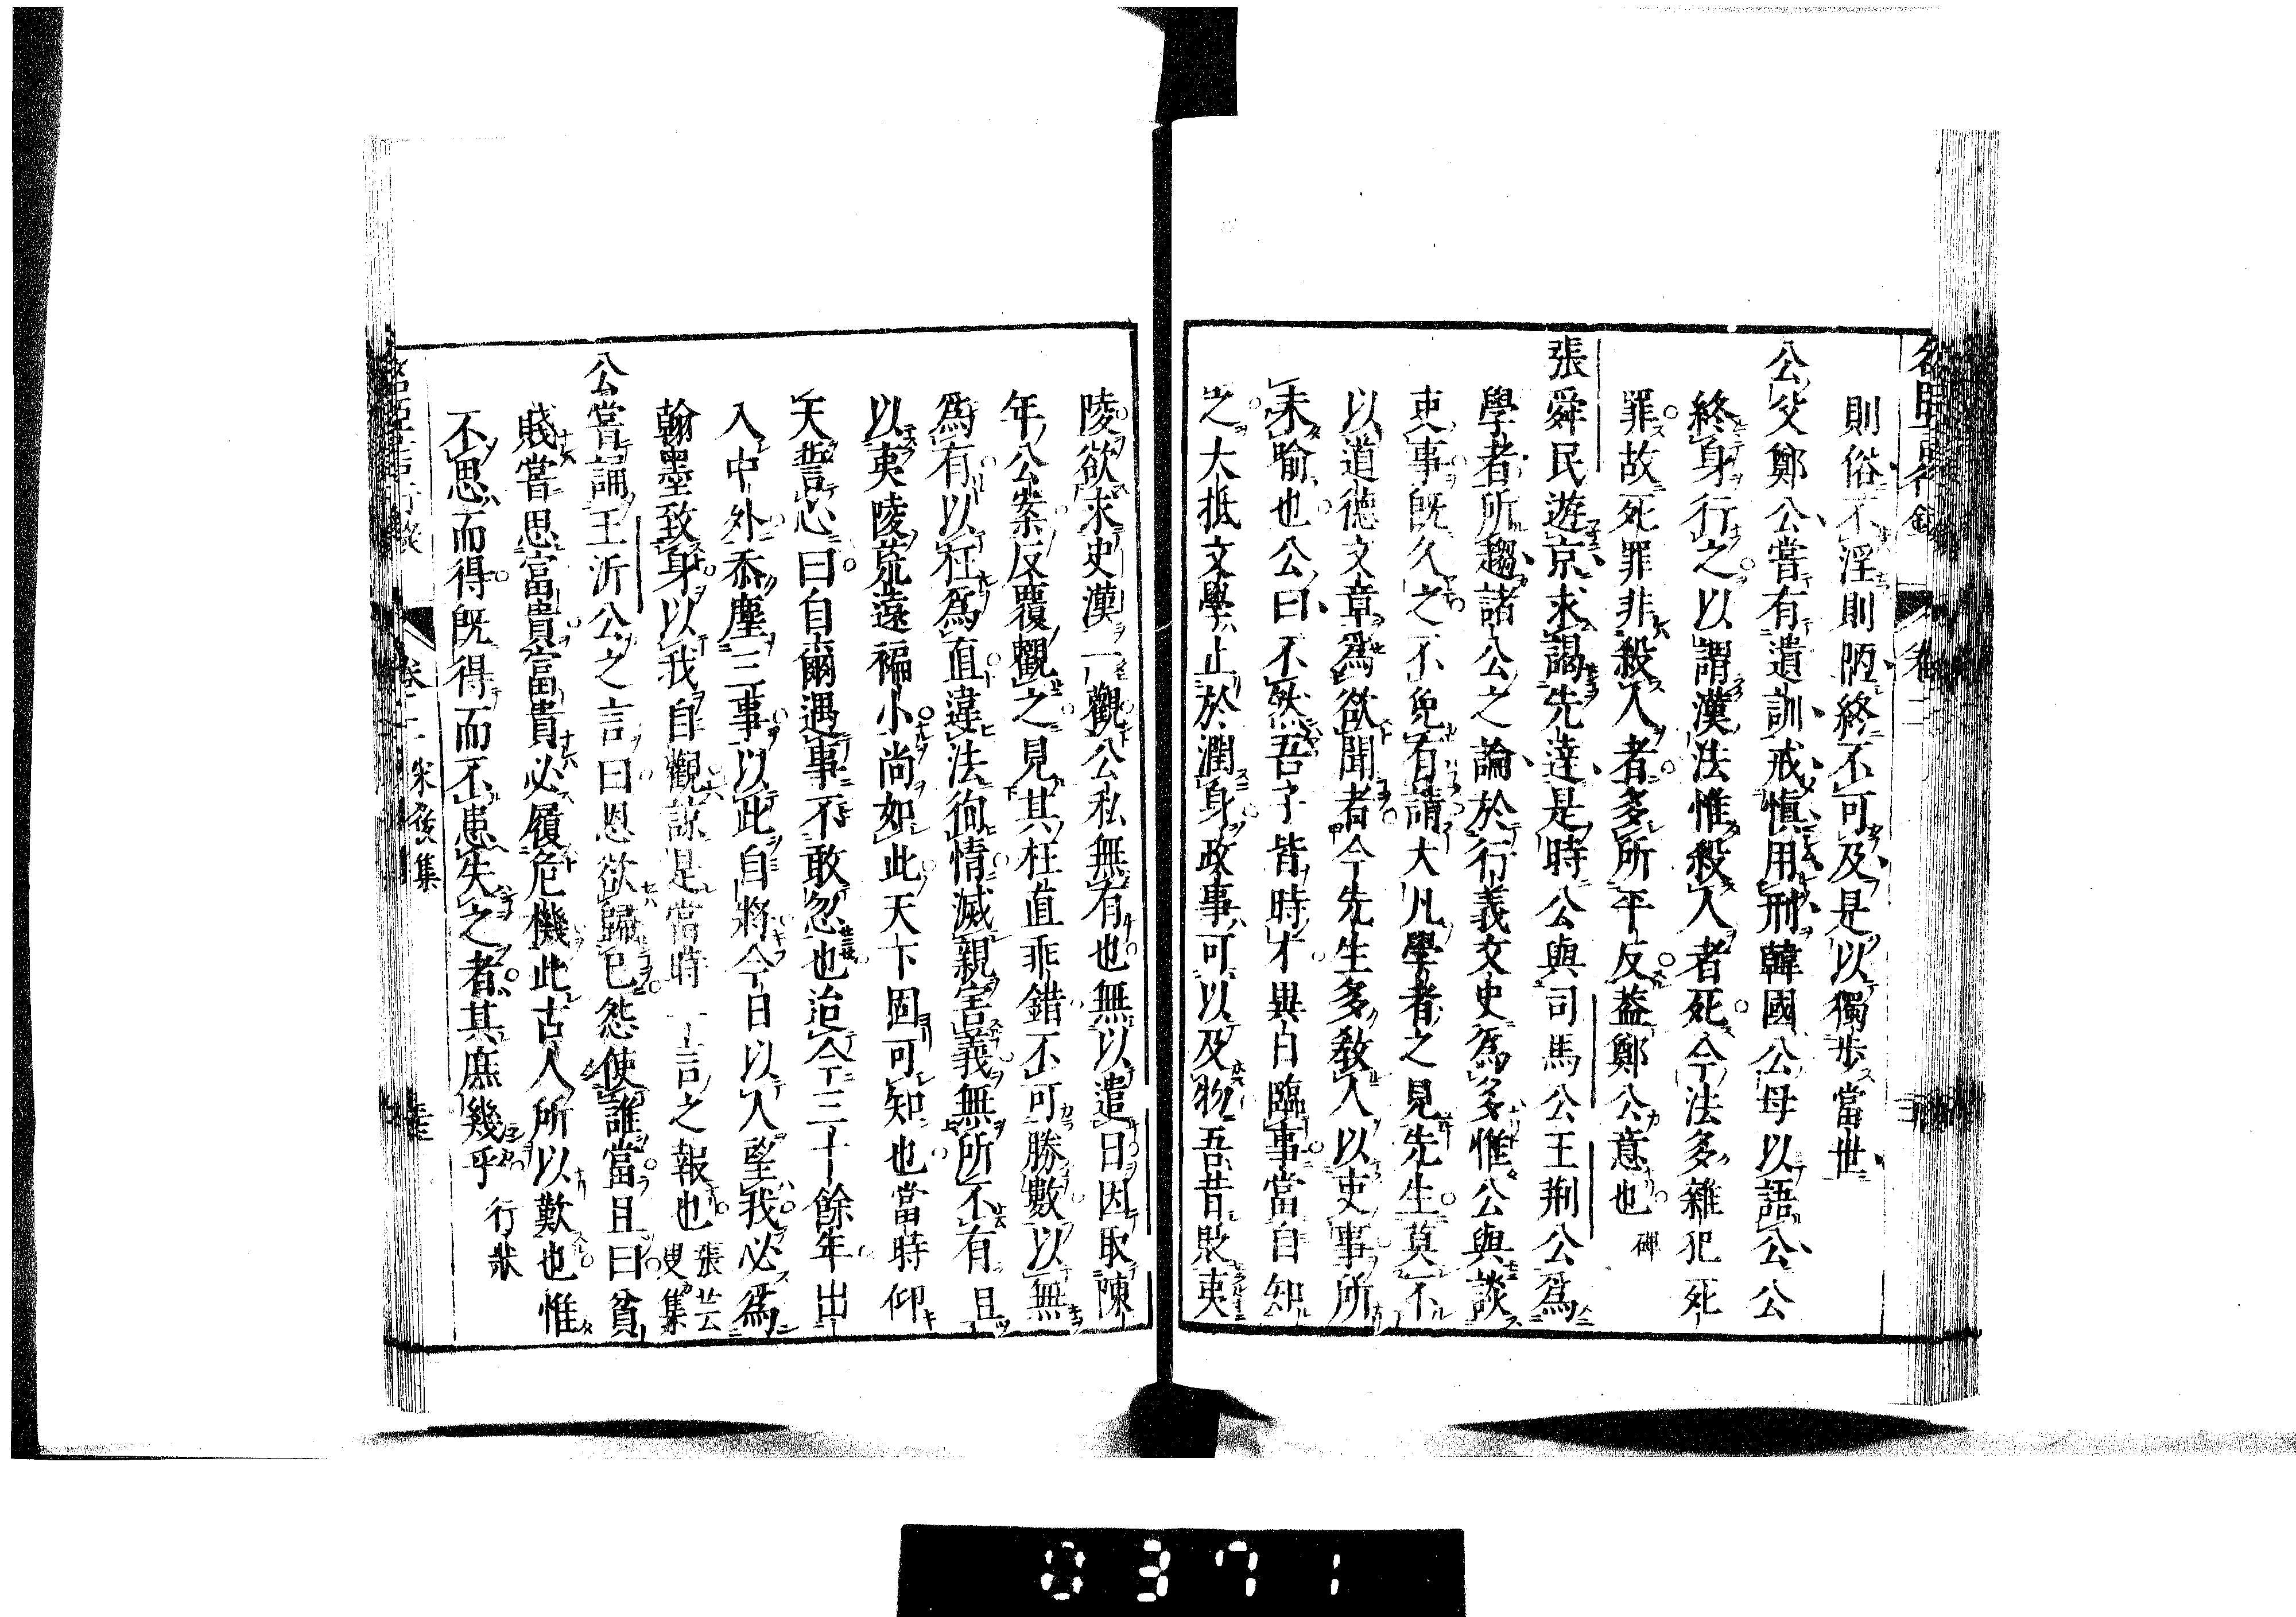 則俗不淫則陋終不可及是以獨步當世
公父鄭公嘗有遺訓戒愼用刑韓國公母以語公公
終身行之以謂漢法惟殺人者死今法多雜犯死
罪故死罪非殺人者多所平反葢鄭公意也 碑
張舜民遊京求謁先達是時公與司馬公王荆公爲
學者所趨諸公之論於行義文史爲多惟公與談
吏事旣久之不免有請大凡學者之見先生莫不
以道德文章爲欲聞者今先生多教人以吏事所
未喻也公曰不然吾子皆時才異日臨事當自知
之大抵文學止於潤身政事可以及物吾昔貶夷
陵欲求史漢一觀公私無有也無以遣日因取陳
年公案反覆觀之見其枉直乖錯不可勝數以無
爲有以枉爲直違法徇情滅親害義無所不有且
以夷陵荒遠褊小尚如此天下固可知也當時仰
天誓心曰自爾遇事不敢忽也迨今三十餘年出
入中外忝塵三事以此自將今日以人望我必爲
翰墨致身以我自觀諒是當時一言之報也 張芸叟集
公嘗誦王沂公之言曰恩欲歸已怨使誰當且曰貧
賤嘗思富貴富貴必履危機此古人所以歎也惟
不思而得旣得而不患失之者其庶幾乎 行狀
卷二 宋後集
0371